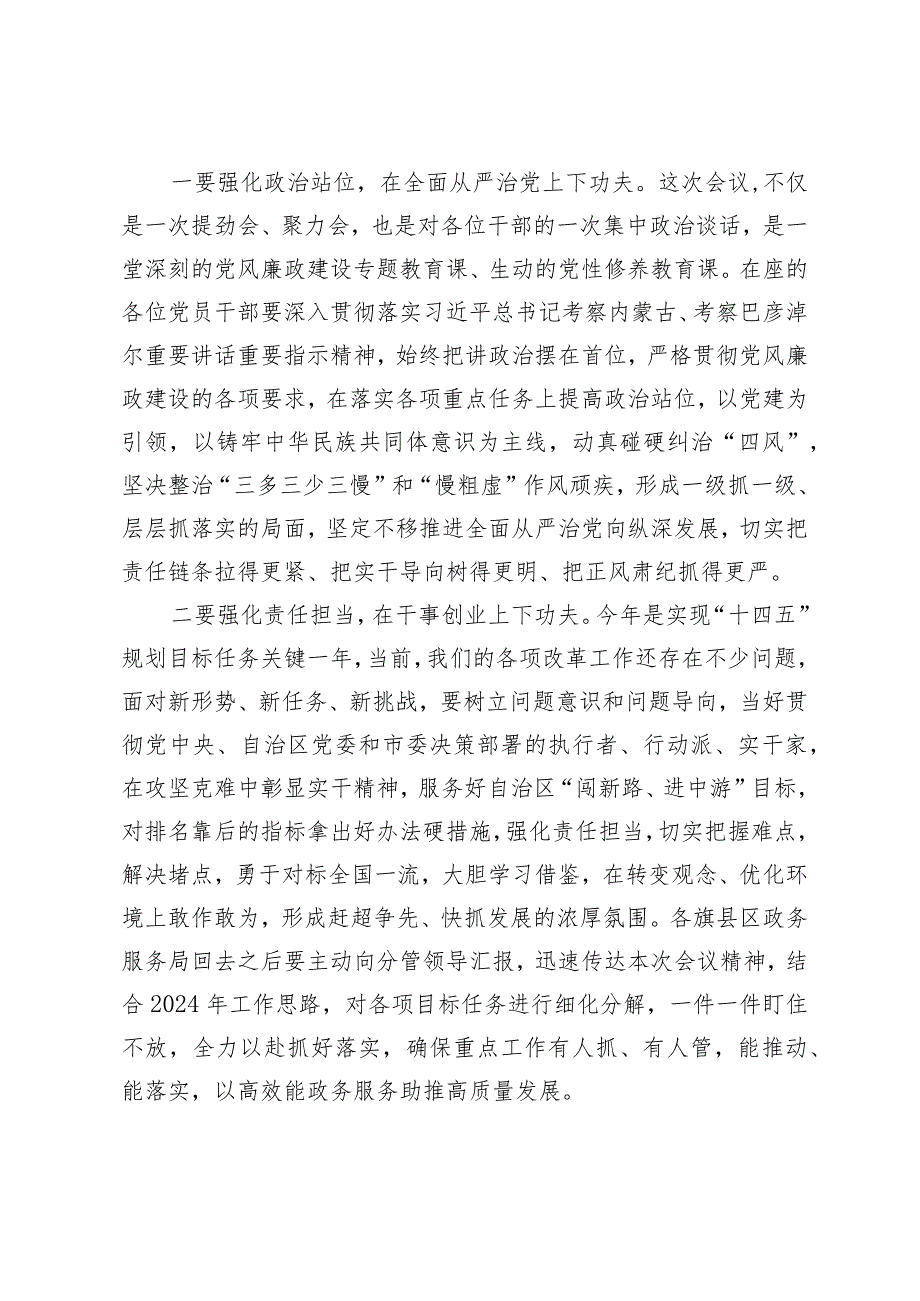 一要强化政治站位，在全面从严治党上下功夫。这次会议,不仅
是一次提劲会、聚力会，也是对各位干部的一次集中政治谈话，是一
堂深刻的党风廉政建设专题教育课、生动的党性修养教育课。在座的
各位党员干部要深入贯彻落实习近平总书记考察内蒙古、考察巴彦淖
尔重要讲话重要指示精神，始终把讲政治摆在首位，严格贯彻党风廉
政建设的各项要求，在落实各项重点任务上提高政治站位，以党建为
引领，以铸牢中华民族共同体意识为主线，动真碰硬纠治“四风”，
坚决整治“三多三少三慢”和“慢粗虚”作风顽疾，形成一级抓一级、
层层抓落实的局面，坚定不移推进全面从严治党向纵深发展，切实把
责任链条拉得更紧、把实干导向树得更明、把正风肃纪抓得更严。
二要强化责任担当，在干事创业上下功夫。今年是实现“十四五”
规划目标任务关键一年，当前，我们的各项改革工作还存在不少问题，
面对新形势、新任务、新挑战，要树立问题意识和问题导向，当好贯
彻党中央、自治区党委和市委决策部署的执行者、行动派、实干家，
在攻坚克难中彰显实干精神，服务好自治区“闯新路、进中游”目标，
对排名靠后的指标拿出好办法硬措施，强化责任担当，切实把握难点，
解决堵点，勇于对标全国一流，大胆学习借鉴，在转变观念、优化环
境上敢作敢为，形成赶超争先、快抓发展的浓厚氛围。各旗县区政务
服务局回去之后要主动向分管领导汇报，迅速传达本次会议精神，结
合2024年工作思路，对各项目标任务进行细化分解，一件一件盯住
不放，全力以赴抓好落实，确保重点工作有人抓、有人管，能推动、
能落实，以高效能政务服务助推高质量发展。